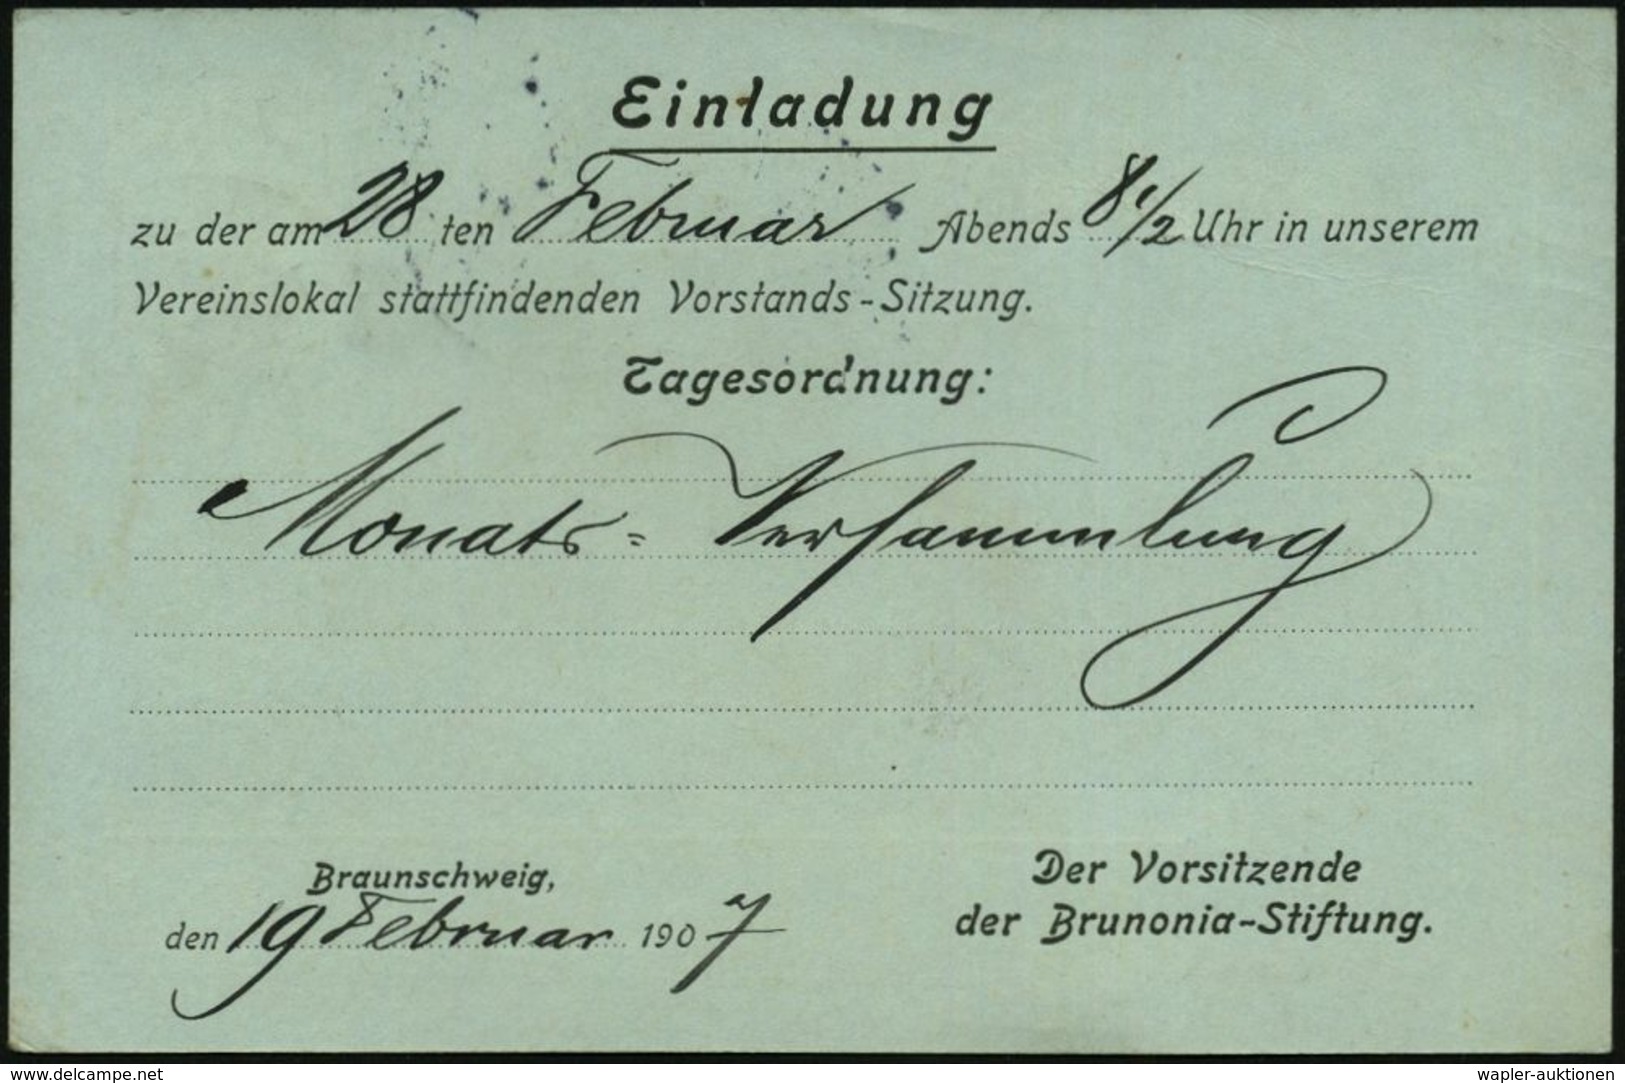 Einladung
zu der am 28 ten Februar Abends 8 1/2 Uhr in unserem
Vereinslokal stattfindenden Vorstands-Sitzung.
Tagesordnung:
Monats=Versammlung
Braunschweig,
den 19 Februar 1907
Der Vorsitzende
der Brunonia-Stiftung.
www.delcampe.net
wapler-auktionen